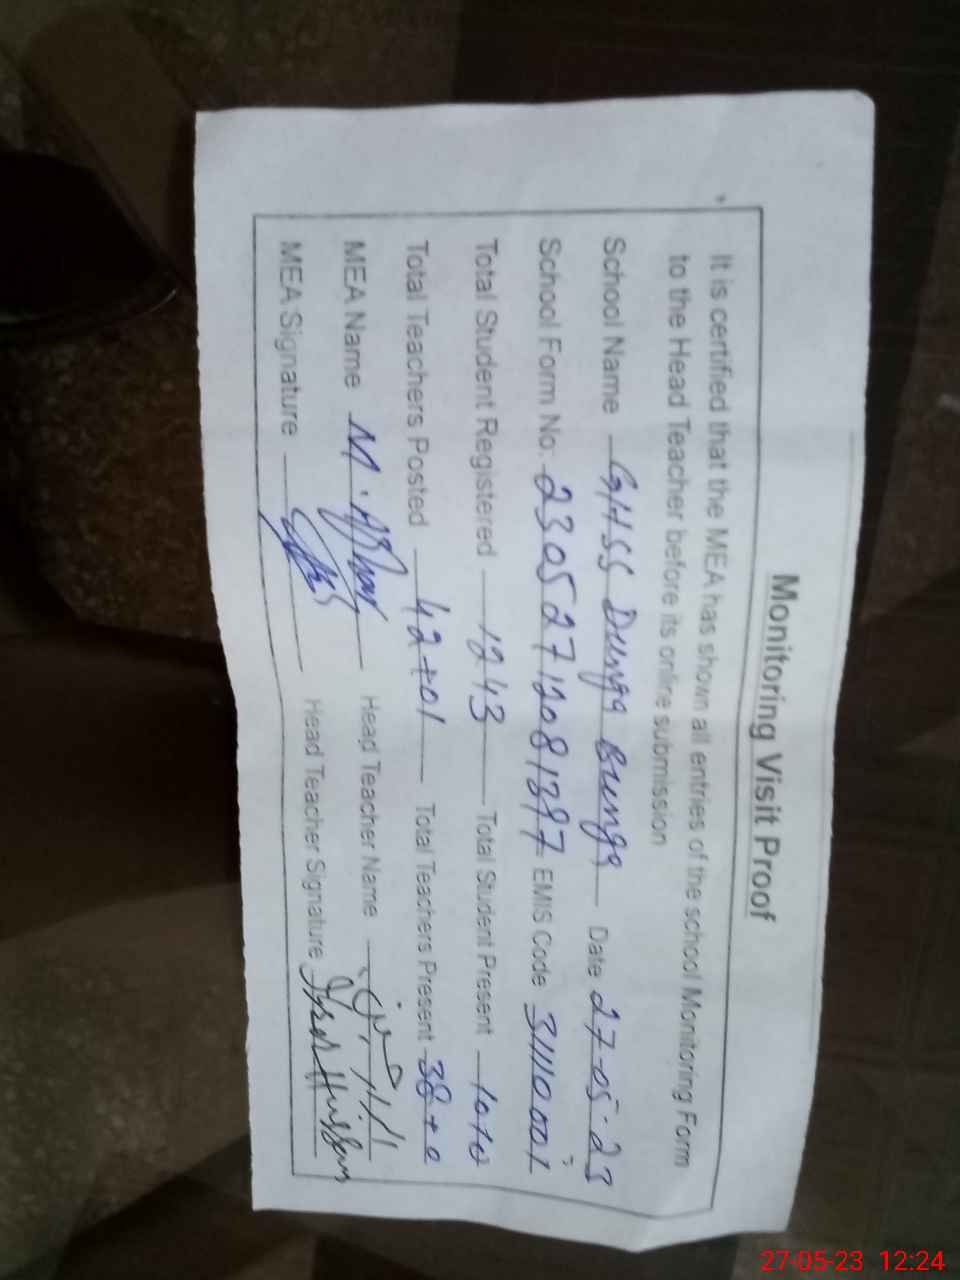 Monitoring Visit Proof
It is certified that the MEA has shown all entries of the school Monitoring Form
to the Head Teacher before its online submission
School Name GHSS Dunga Bunga Date 27-05-23
School Form No: 23052712081397 EMIS Code 31110001
Total Student Registered 1243 Total Student Present 1070
Total Teachers Posted 42+01 Total Teachers Present 38+0
MEA Name M. Head Teacher Name
MEA Signature Head Teacher Signature
27-05-23 12:24